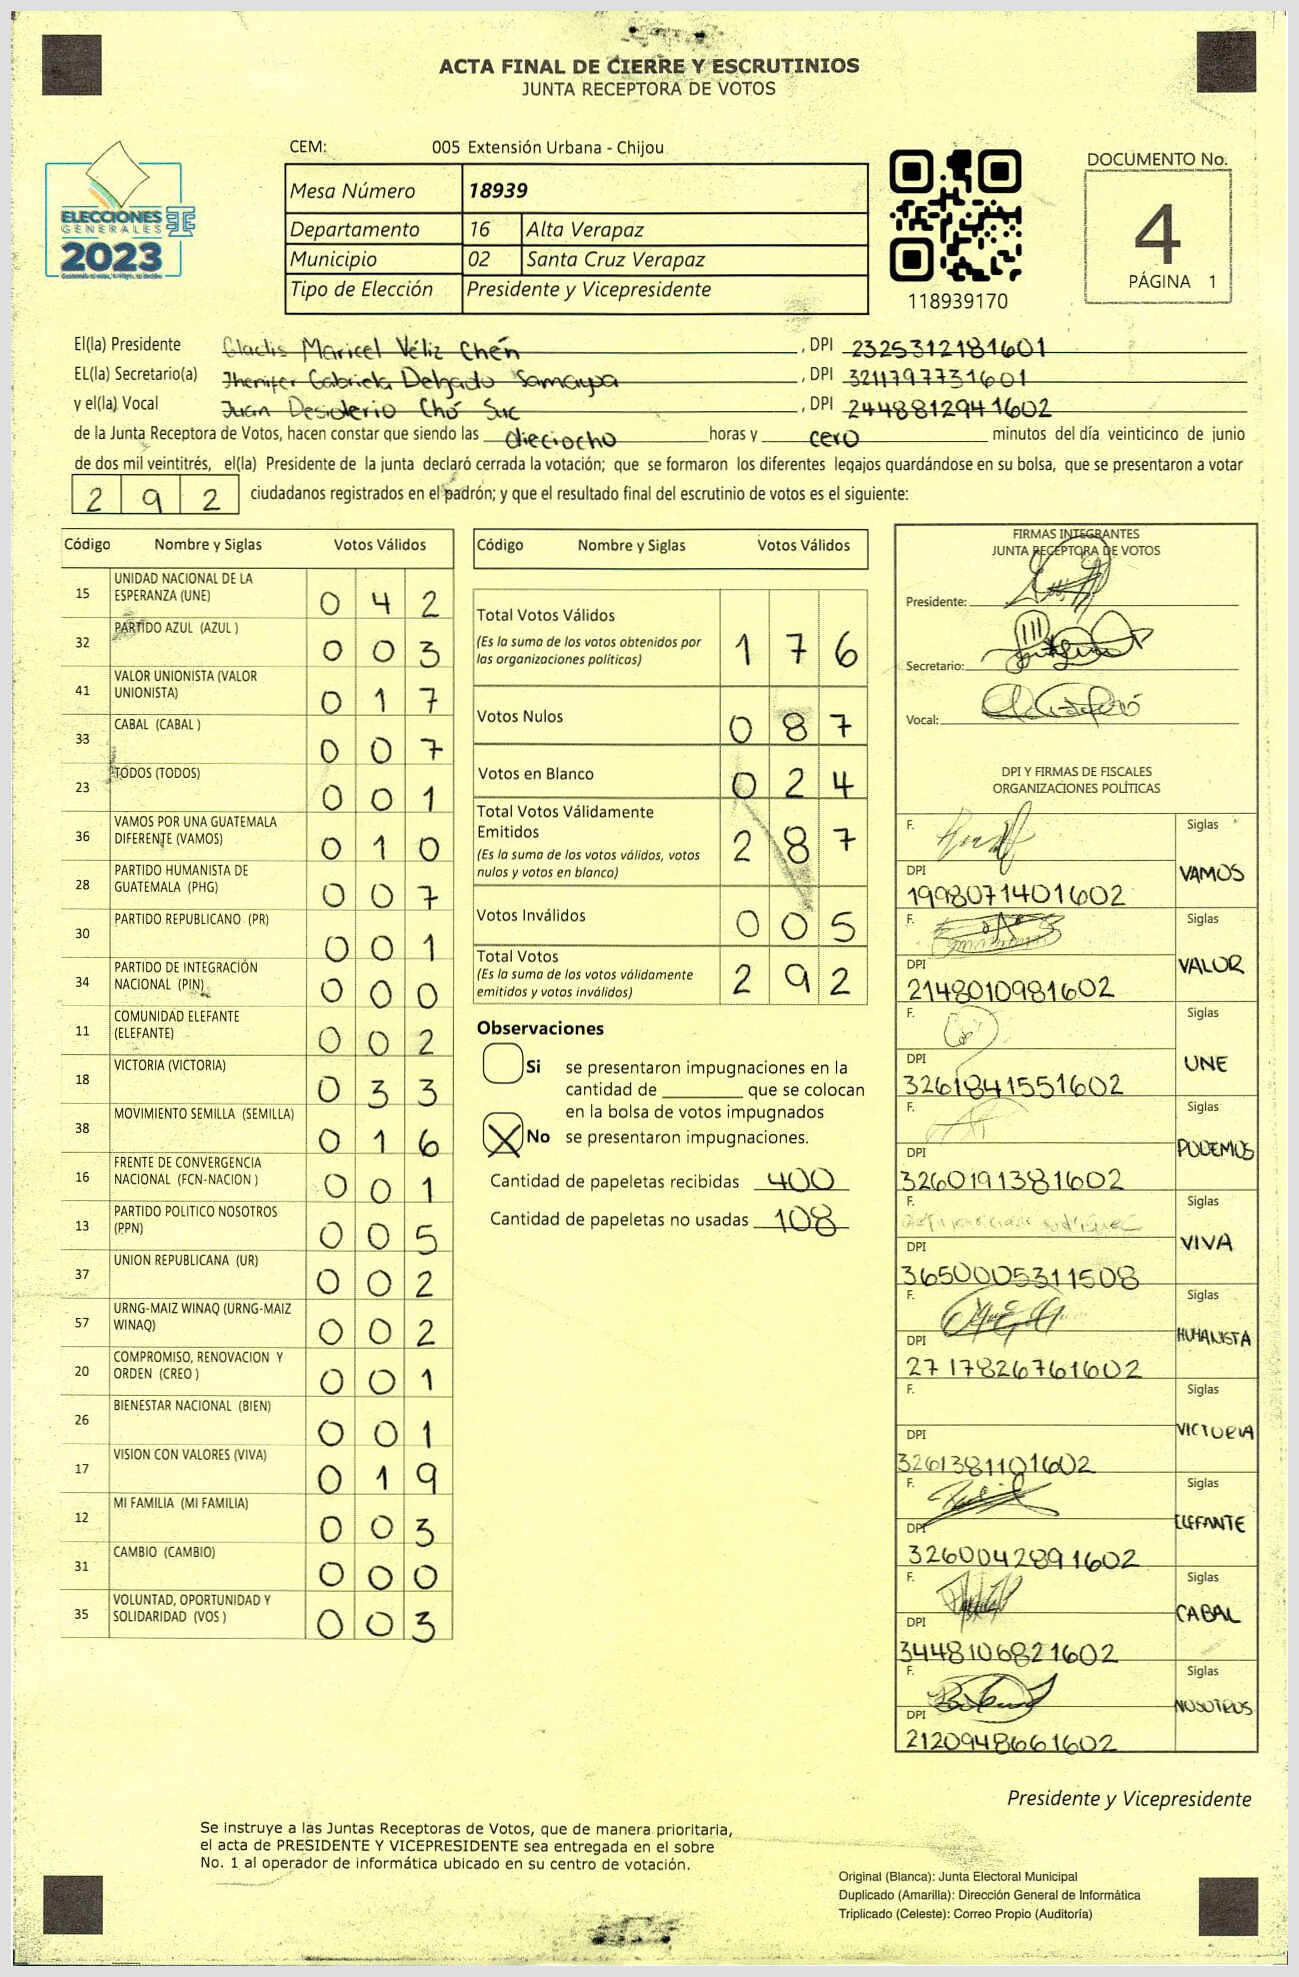 ACTA FINAL DE CIERRE Y ESCRUTINIOS
JUNTA RECEPTORA DE VOTOS
ELECCIONES
GENERALES
2023
TSE
CEM: 005 Extensión Urbana - Chijou
Mesa Número 18939
Departamento 16 Alta Verapaz
Municipio 02 Santa Cruz Verapaz
Tipo de Elección Presidente y Vicepresidente
118939170
DOCUMENTO No.
4
PÁGINA 1
El(la) Presidente Gladis Maricel Véliz Chén , DPI 2325312181601
EL(la) Secretario(a) Jhenifer Gabriela Delgado Samayoa , DPI 3211797731601
y el(la) Vocal Juan Desiderio Chó Suc , DPI 2448812941602
de la Junta Receptora de Votos, hacen constar que siendo las dieciocho horas y cero minutos del día veinticinco de junio
de dos mil veintitrés, el(la) Presidente de la junta declaró cerrada la votación; que se formaron los diferentes legajos guardándose en su bolsa, que se presentaron a votar
292 ciudadanos registrados en el padrón; y que el resultado final del escrutinio de votos es el siguiente:
Código Nombre y Siglas Votos Válidos
15 UNIDAD NACIONAL DE LA ESPERANZA (UNE) 042
32 PARTIDO AZUL (AZUL ) 003
41 VALOR UNIONISTA (VALOR UNIONISTA) 017
33 CABAL (CABAL ) 007
23 TODOS (TODOS) 001
36 VAMOS POR UNA GUATEMALA DIFERENTE (VAMOS) 010
28 PARTIDO HUMANISTA DE GUATEMALA (PHG) 007
30 PARTIDO REPUBLICANO (PR) 001
34 PARTIDO DE INTEGRACIÓN NACIONAL (PIN) 000
11 COMUNIDAD ELEFANTE (ELEFANTE) 002
18 VICTORIA (VICTORIA) 033
38 MOVIMIENTO SEMILLA (SEMILLA) 016
16 FRENTE DE CONVERGENCIA NACIONAL (FCN-NACION ) 001
13 PARTIDO POLITICO NOSOTROS (PPN) 005
37 UNION REPUBLICANA (UR) 002
57 URNG-MAIZ WINAQ (URNG-MAIZ WINAQ) 002
20 COMPROMISO, RENOVACION Y ORDEN (CREO ) 001
26 BIENESTAR NACIONAL (BIEN) 001
17 VISION CON VALORES (VIVA) 019
12 MI FAMILIA (MI FAMILIA) 003
31 CAMBIO (CAMBIO) 000
35 VOLUNTAD, OPORTUNIDAD Y SOLIDARIDAD (VOS ) 003
Código Nombre y Siglas Votos Válidos
Total Votos Válidos 176
(Es la suma de los votos obtenidos por
las organizaciones políticos)
Votos Nulos 087
Votos en Blanco 024
Total Votos Válidamente
Emitidos 287
(Es la suma de los votos válidos, votos
nulos y votos en blanco)
Votos Inválidos 005
Total Votos 292
(Es la suma de los votos válidamente
emitidos y votos inválidos)
Observaciones
Si se presentaron impugnaciones en la
cantidad de ________ que se colocan
en la bolsa de votos impugnados
X No se presentaron impugnaciones.
Cantidad de papeletas recibidas 400
Cantidad de papeletas no usadas 108
FIRMAS INTEGRANTES
JUNTA RECEPTORA DE VOTOS
Presidente:
Secretario:
Vocal:
DPI Y FIRMAS DE FISCALES
ORGANIZACIONES POLÍTICAS
F. Siglas
DPI VAMOS
1998071401602
F. Siglas
DPI VALOR
2148010981602
F. Siglas
DPI UNE
3261841551602
F. Siglas
DPI PODEMOS
3260191381602
F. Siglas
DPI VIVA
3650005311508
F. Siglas
DPI HUMANISTA
2717826761602
F. Siglas
DPI VICTORIA
3261381101602
F. Siglas
DPI ELEFANTE
3260042891602
F. Siglas
DPI CABAL
3448106821602
F. Siglas
DPI NOSOTROS
2120948661602
Presidente y Vicepresidente
Se instruye a las Juntas Receptoras de Votos, que de manera prioritaria,
el acta de PRESIDENTE Y VICEPRESIDENTE sea entregada en el sobre
No. 1 al operador de informática ubicado en su centro de votación.
Original (Blanca): Junta Electoral Municipal
Duplicado (Amarilla): Dirección General de Informática
Triplicado (Celeste): Correo Propio (Auditoría)